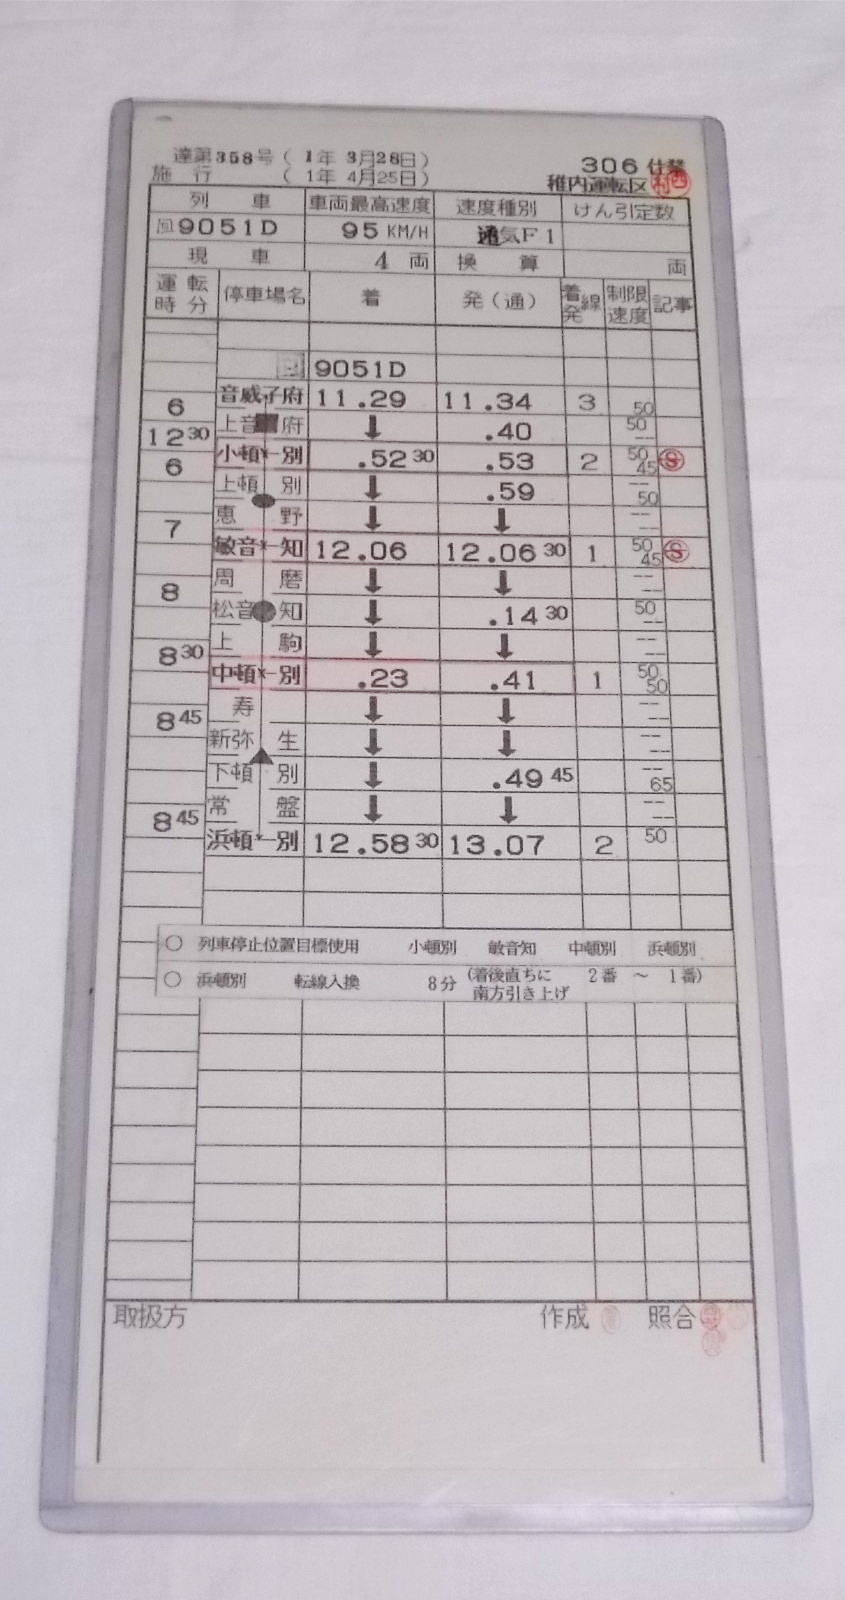 達第358号（ 1年 3月28日）
施　行　（ 1年 4月25日）
306 仕業
稚内運転区 西村
列　車　車両最高速度　速度種別　けん引定数
回9051D　95 KM/H　通気F1
現　車　4 両　換　算　両
運転時分　停車場名　着　発（通）　着発線　制限速度　記事
回 9051D
音威子府　11.29　11.34　3　50
6
上音　府　↓　.40　50 --
12 30
小頓　別　.52 30　.53　2　50 45　Ⓢ
6
上頓　別　↓　.59　-- 50
恵　野　↓　↓　-- --
7
敏音　知　12.06　12.06 30　1　50 45　Ⓢ
周　磨　↓　↓　-- --
8
松音　知　↓　.14 30　50 --
上　駒　↓　↓　-- --
8 30
中頓　別　.23　.41　1　50 50
寿　↓　↓　-- --
8 45
新弥　生　↓　↓　-- --
下頓　別　↓　.49 45　-- 65
常　盤　↓　↓　-- --
8 45
浜頓　別　12.58 30　13.07　2　50
○ 列車停止位置目標使用　小頓別　敏音知　中頓別　浜頓別
○ 浜頓別　転線入換　8分　（着後直ちに　2番 ～ 1番）
南方引き上げ
取扱方　作成　照合